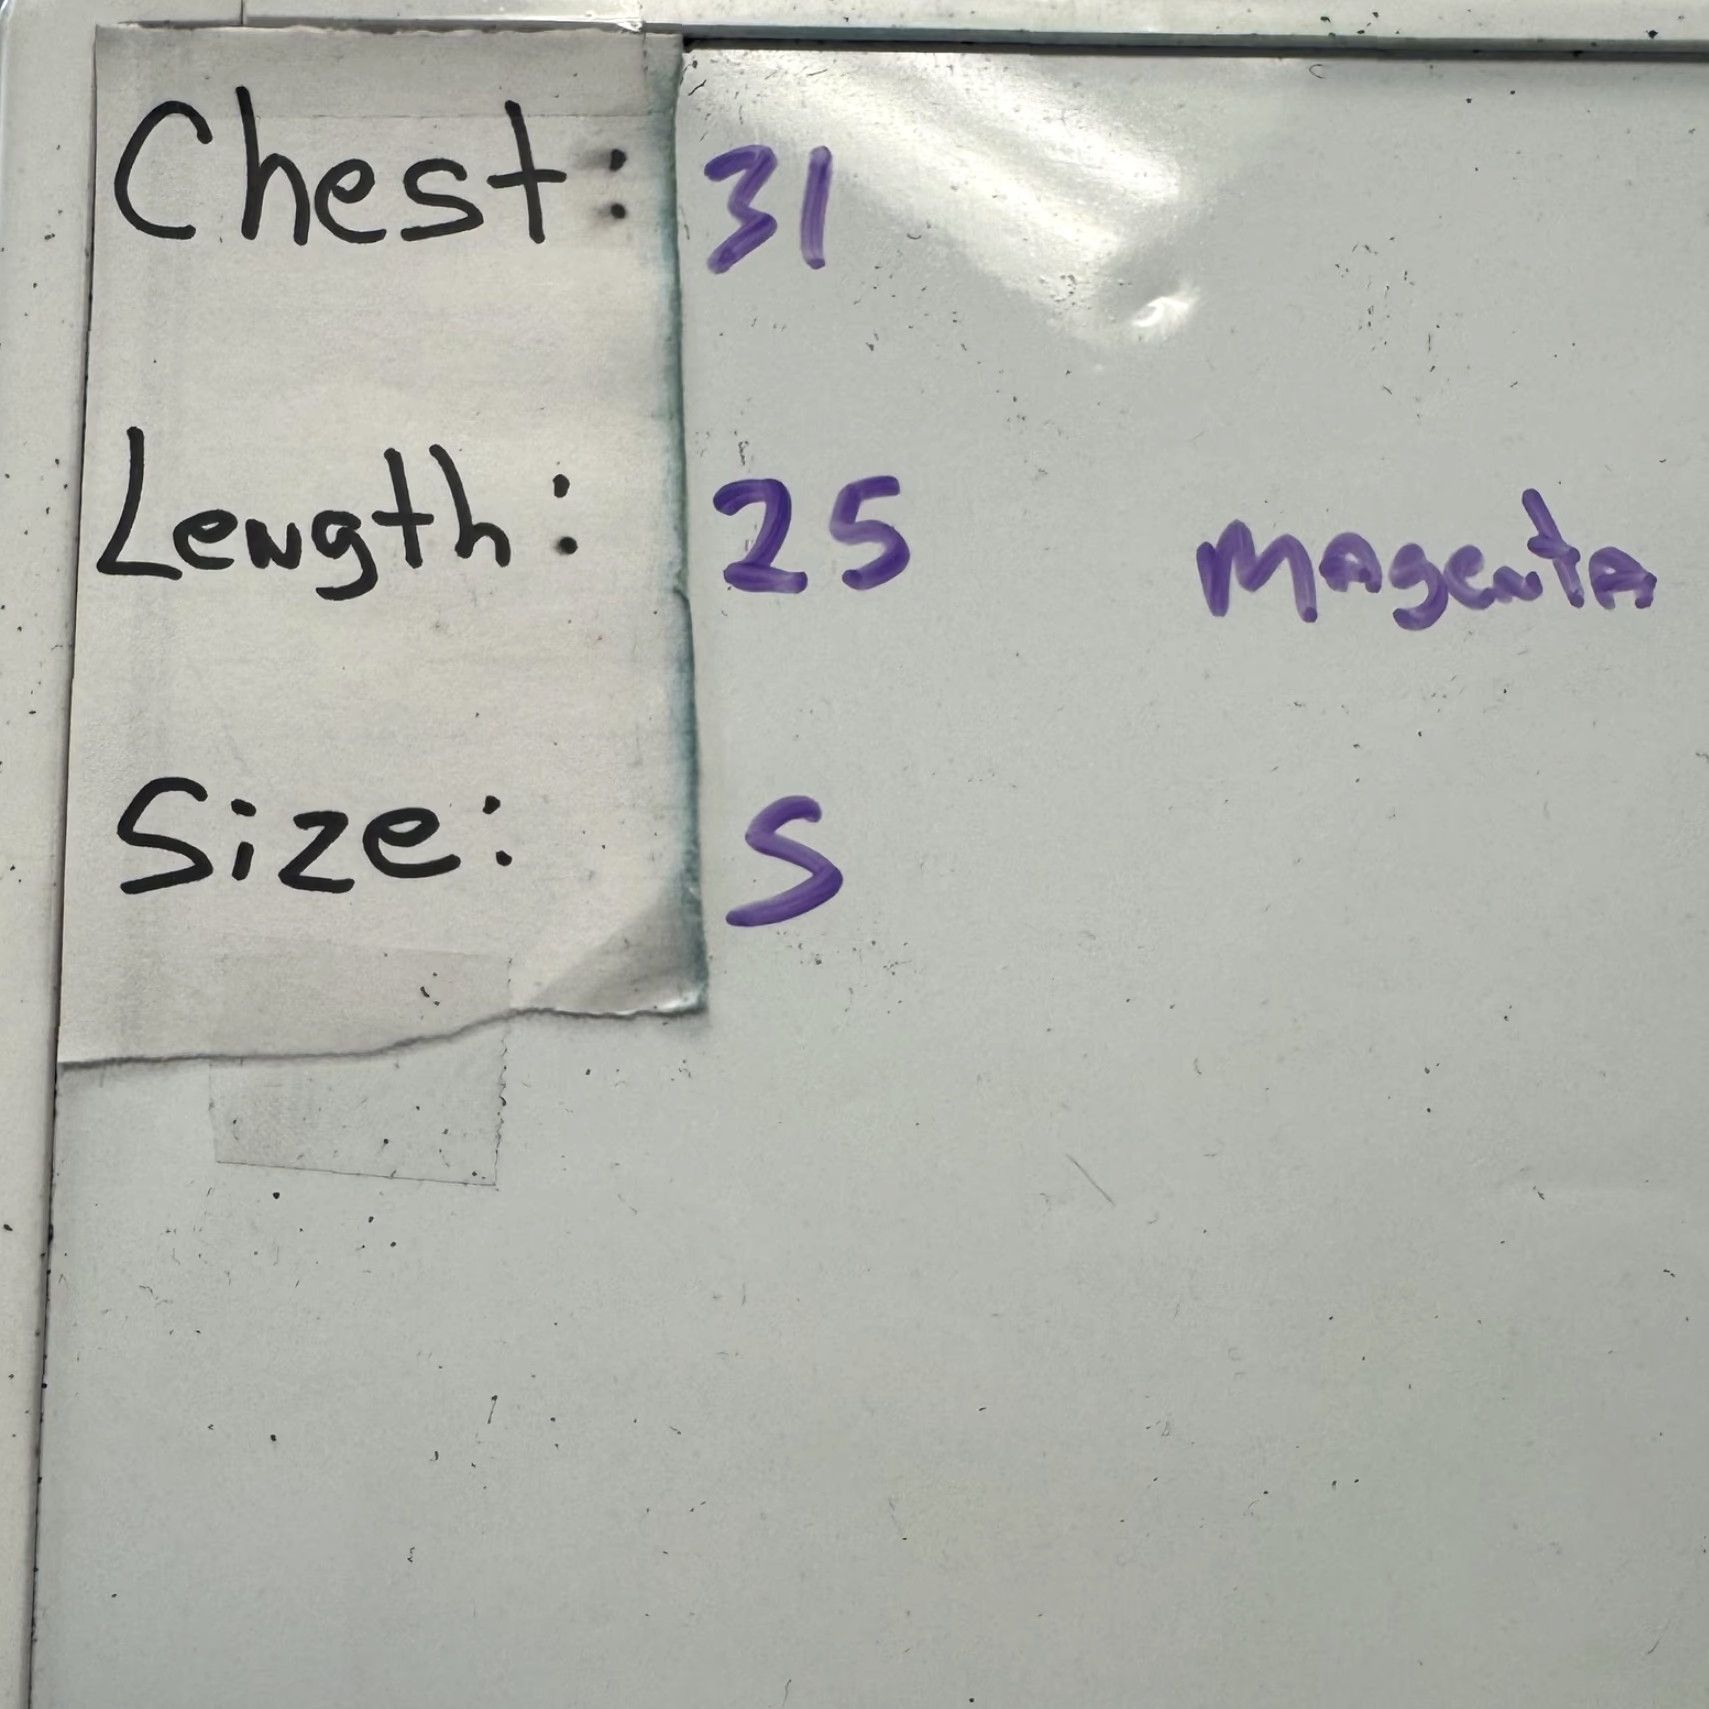 Chest: 31
Length: 25 Magenta
Size: S